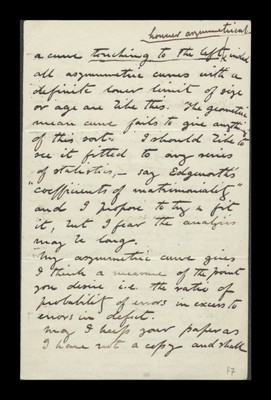 however asymmetrical
a curve touching to the left, indeed
all asymmetric curves with a
definite lower limit of size
or age are like this. The geometric
mean curve fails to give anything
of this sort. I should like to
see it fitted to any series
of statistics, – say Edgeworth's
"coefficients of matrimoniality"
and I propose to try & fit
it, but I fear the analysis
may be long.
My asymmetric curve gives
I think a measure of the point
you desire i.e. the ratio of
probability of errors in excess to
errors in defect.
May I keep your paper as
I have not a copy and shall